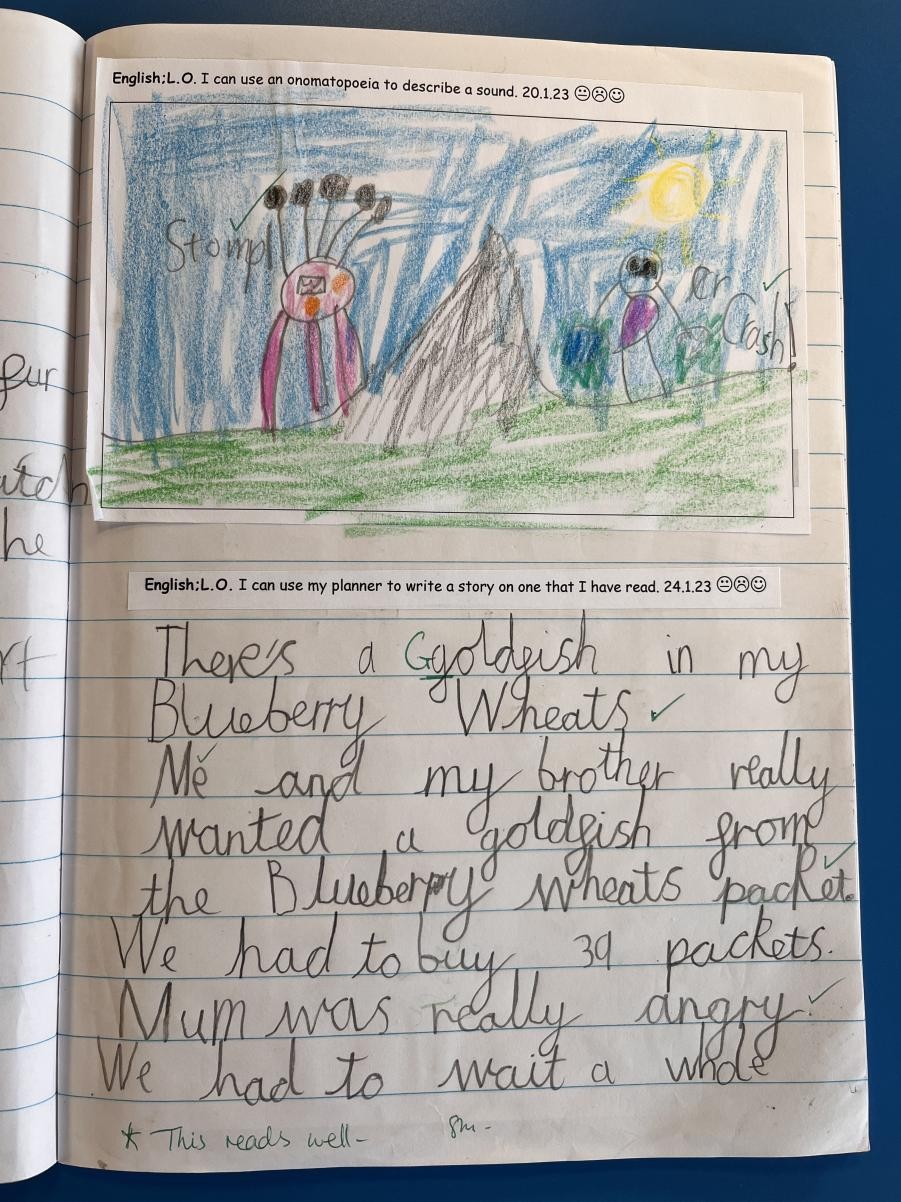 English;L.O. I can use an onomatopoeia to describe a sound. 20.1.23
Stomp!
cr
Crash!
fur
atch
he
rt
English;L.O. I can use my planner to write a story on one that I have read. 24.1.23
There's a Ggoldfish in my
Blueberry Wheats
Me and my brother really
wanted a goldfish from
the Blueberry Wheats packet.
We had to buy 39 packets.
Mum was really angry
We had to wait a whole
* This reads well-